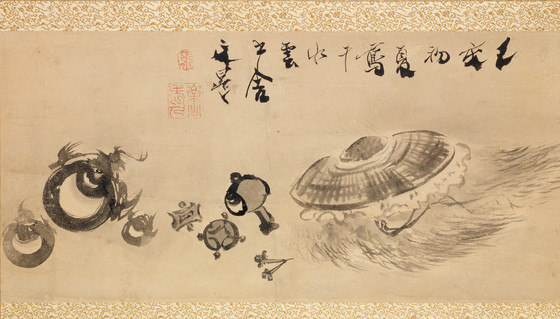 壬戌初夏寫于水雲
之舍
文晁